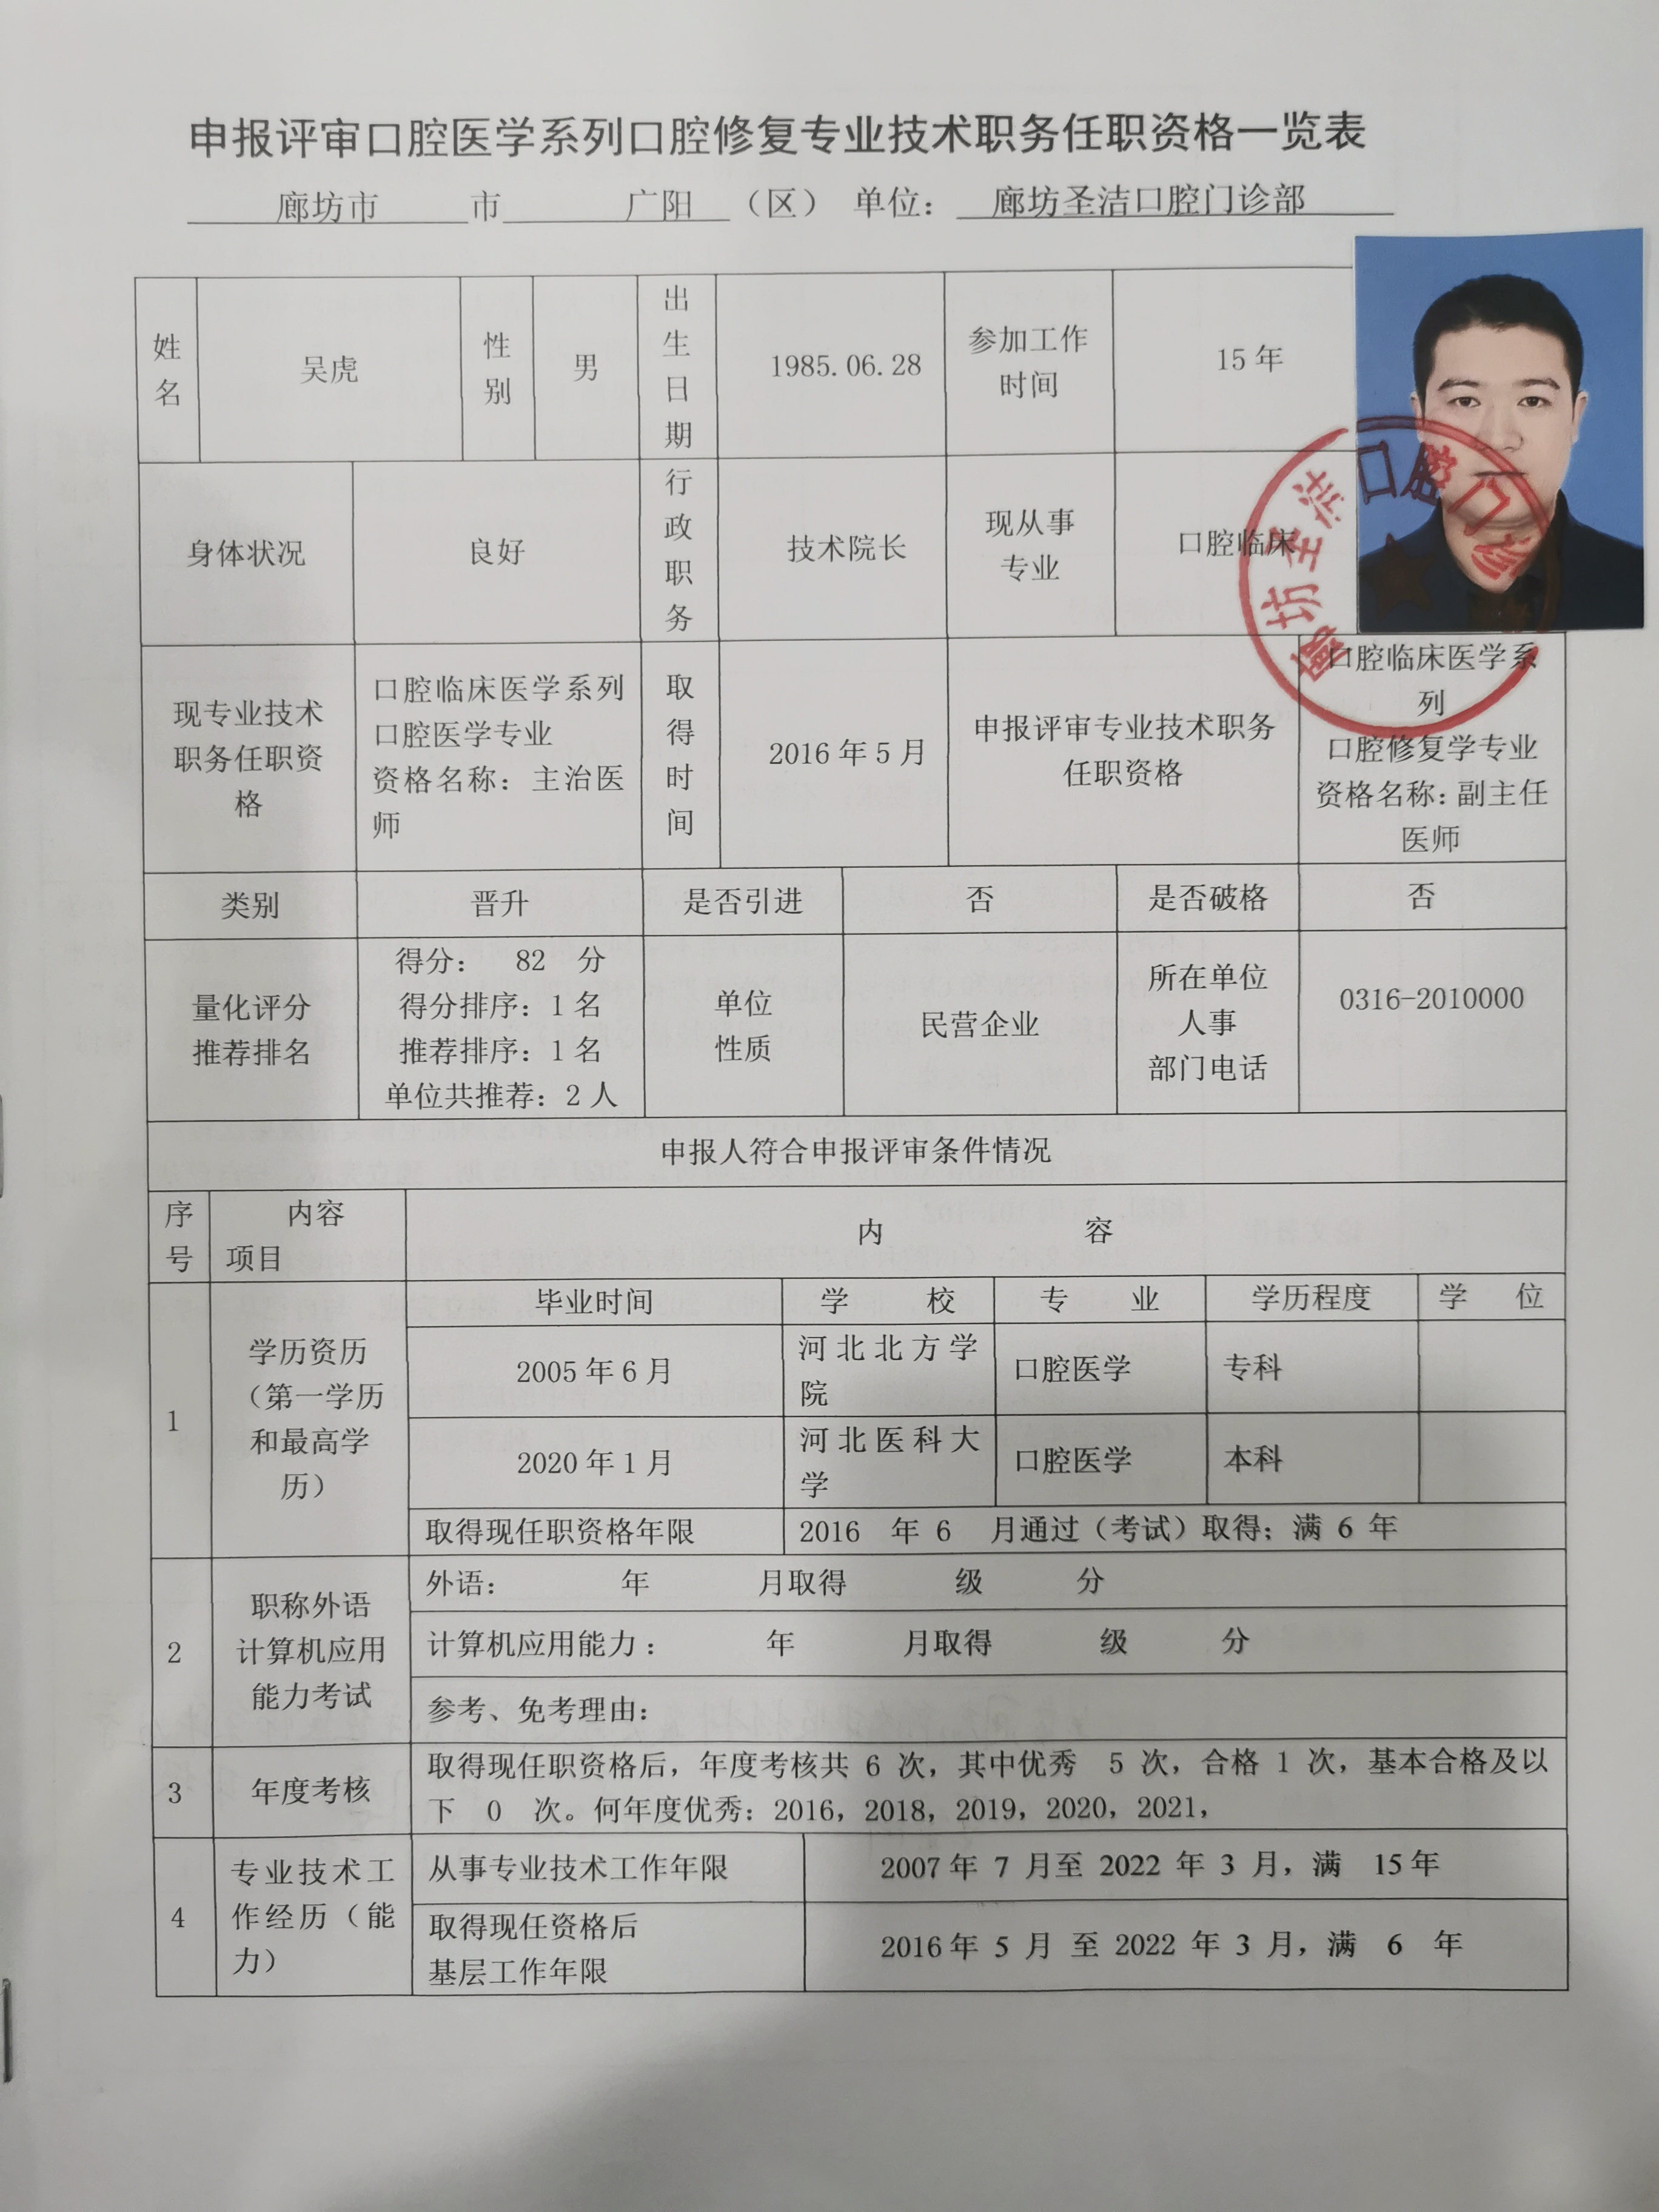 申报评审口腔医学系列口腔修复专业技术职务任职资格一览表
廊坊市 市 广阳 （区） 单位： 廊坊圣洁口腔门诊部
姓名 吴虎 性别 男 出生日期 1985.06.28 参加工作时间 15年
身体状况 良好 行政职务 技术院长 现从事专业 口腔临床
廊坊圣洁口腔门诊
现专业技术职务任职资格
口腔临床医学系列
口腔医学专业
资格名称：主治医师
取得时间 2016年5月
申报评审专业技术职务任职资格
口腔临床医学系列
口腔修复学专业
资格名称：副主任医师
类别 晋升 是否引进 否 是否破格 否
量化评分推荐排名
得分： 82 分
得分排序：1名
推荐排序：1名
单位共推荐：2人
单位性质 民营企业 所在单位人事部门电话 0316-2010000
申报人符合申报评审条件情况
序号 内容 项目 内 容
1 学历资历（第一学历和最高学历）
毕业时间 学 校 专 业 学历程度 学 位
2005年6月 河北北方学院 口腔医学 专科
2020年1月 河北医科大学 口腔医学 本科
取得现任职资格年限 2016 年 6 月通过（考试）取得；满 6 年
2 职称外语计算机应用能力考试
外语： 年 月取得 级 分
计算机应用能力： 年 月取得 级 分
参考、免考理由：
3 年度考核
取得现任职资格后，年度考核共 6 次，其中优秀 5 次，合格 1 次，基本合格及以
下 0 次。何年度优秀：2016，2018，2019，2020，2021，
4 专业技术工作经历（能力）
从事专业技术工作年限 2007年 7 月至 2022 年 3 月，满 15年
取得现任资格后基层工作年限 2016年 5 月 至 2022 年 3 月，满 6 年